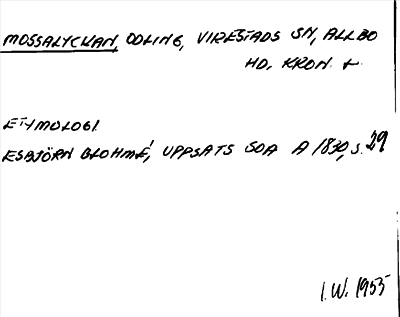 MOSSALYCKAN, ODLING, VIRESTADS SN, ALLBO
HD, KRON. L.
ETYMOLOGI
ESBJÖRN BLOHMÉ, UPPSATS SOA A 1830, S. 29
I.W. 1955